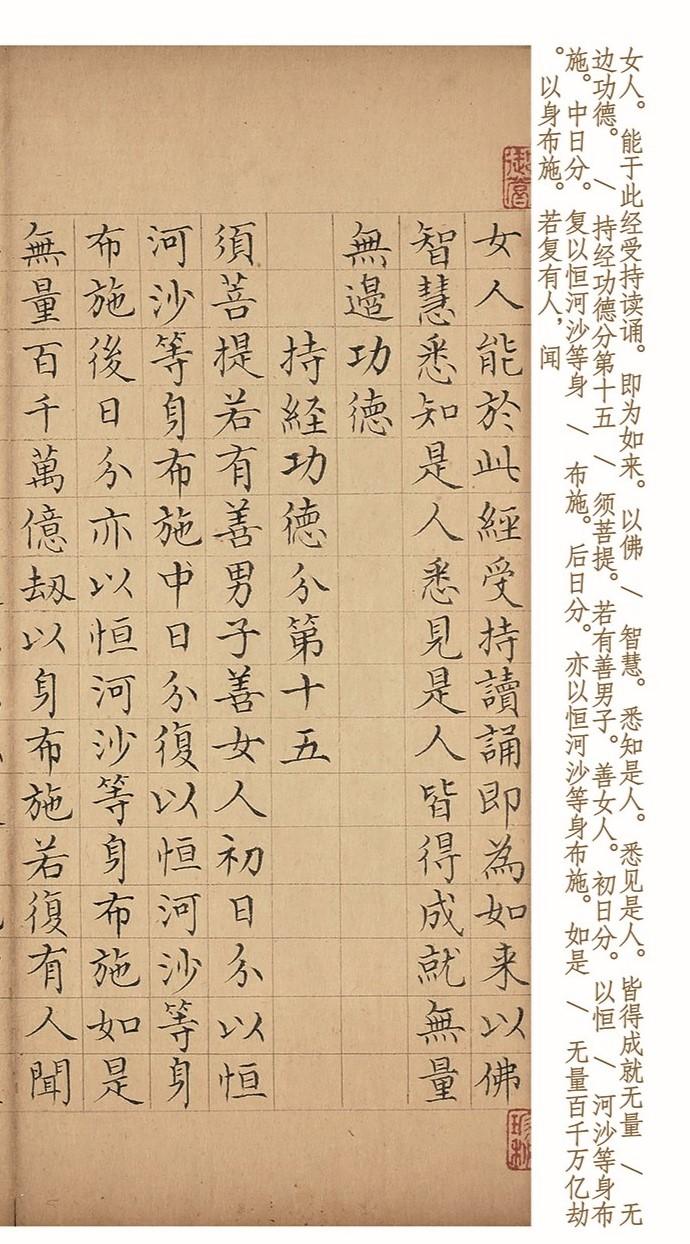 女人。能于此经受持读诵。即为如来。以佛 / 智慧。悉知是人。悉见是人。皆得成就无量 / 无
边功德。 / 持经功德分第十五 / 须菩提。若有善男子。善女人。初日分。以恒 / 河沙等身布
施。中日分。复以恒河沙等身 / 布施。后日分。亦以恒河沙等身布施。如是 / 无量百千万亿劫
。以身布施。若复有人，闻
女人能於此經受持讀誦即為如来以佛
智慧悉知是人悉見是人皆得成就無量
無邊功德
持経功德分第十五
須菩提若有善男子善女人初日分以恒
河沙等身布施中日分復以恒河沙等身
布施後日分亦以恒河沙等身布施如是
無量百千萬億劫以身布施若復有人聞